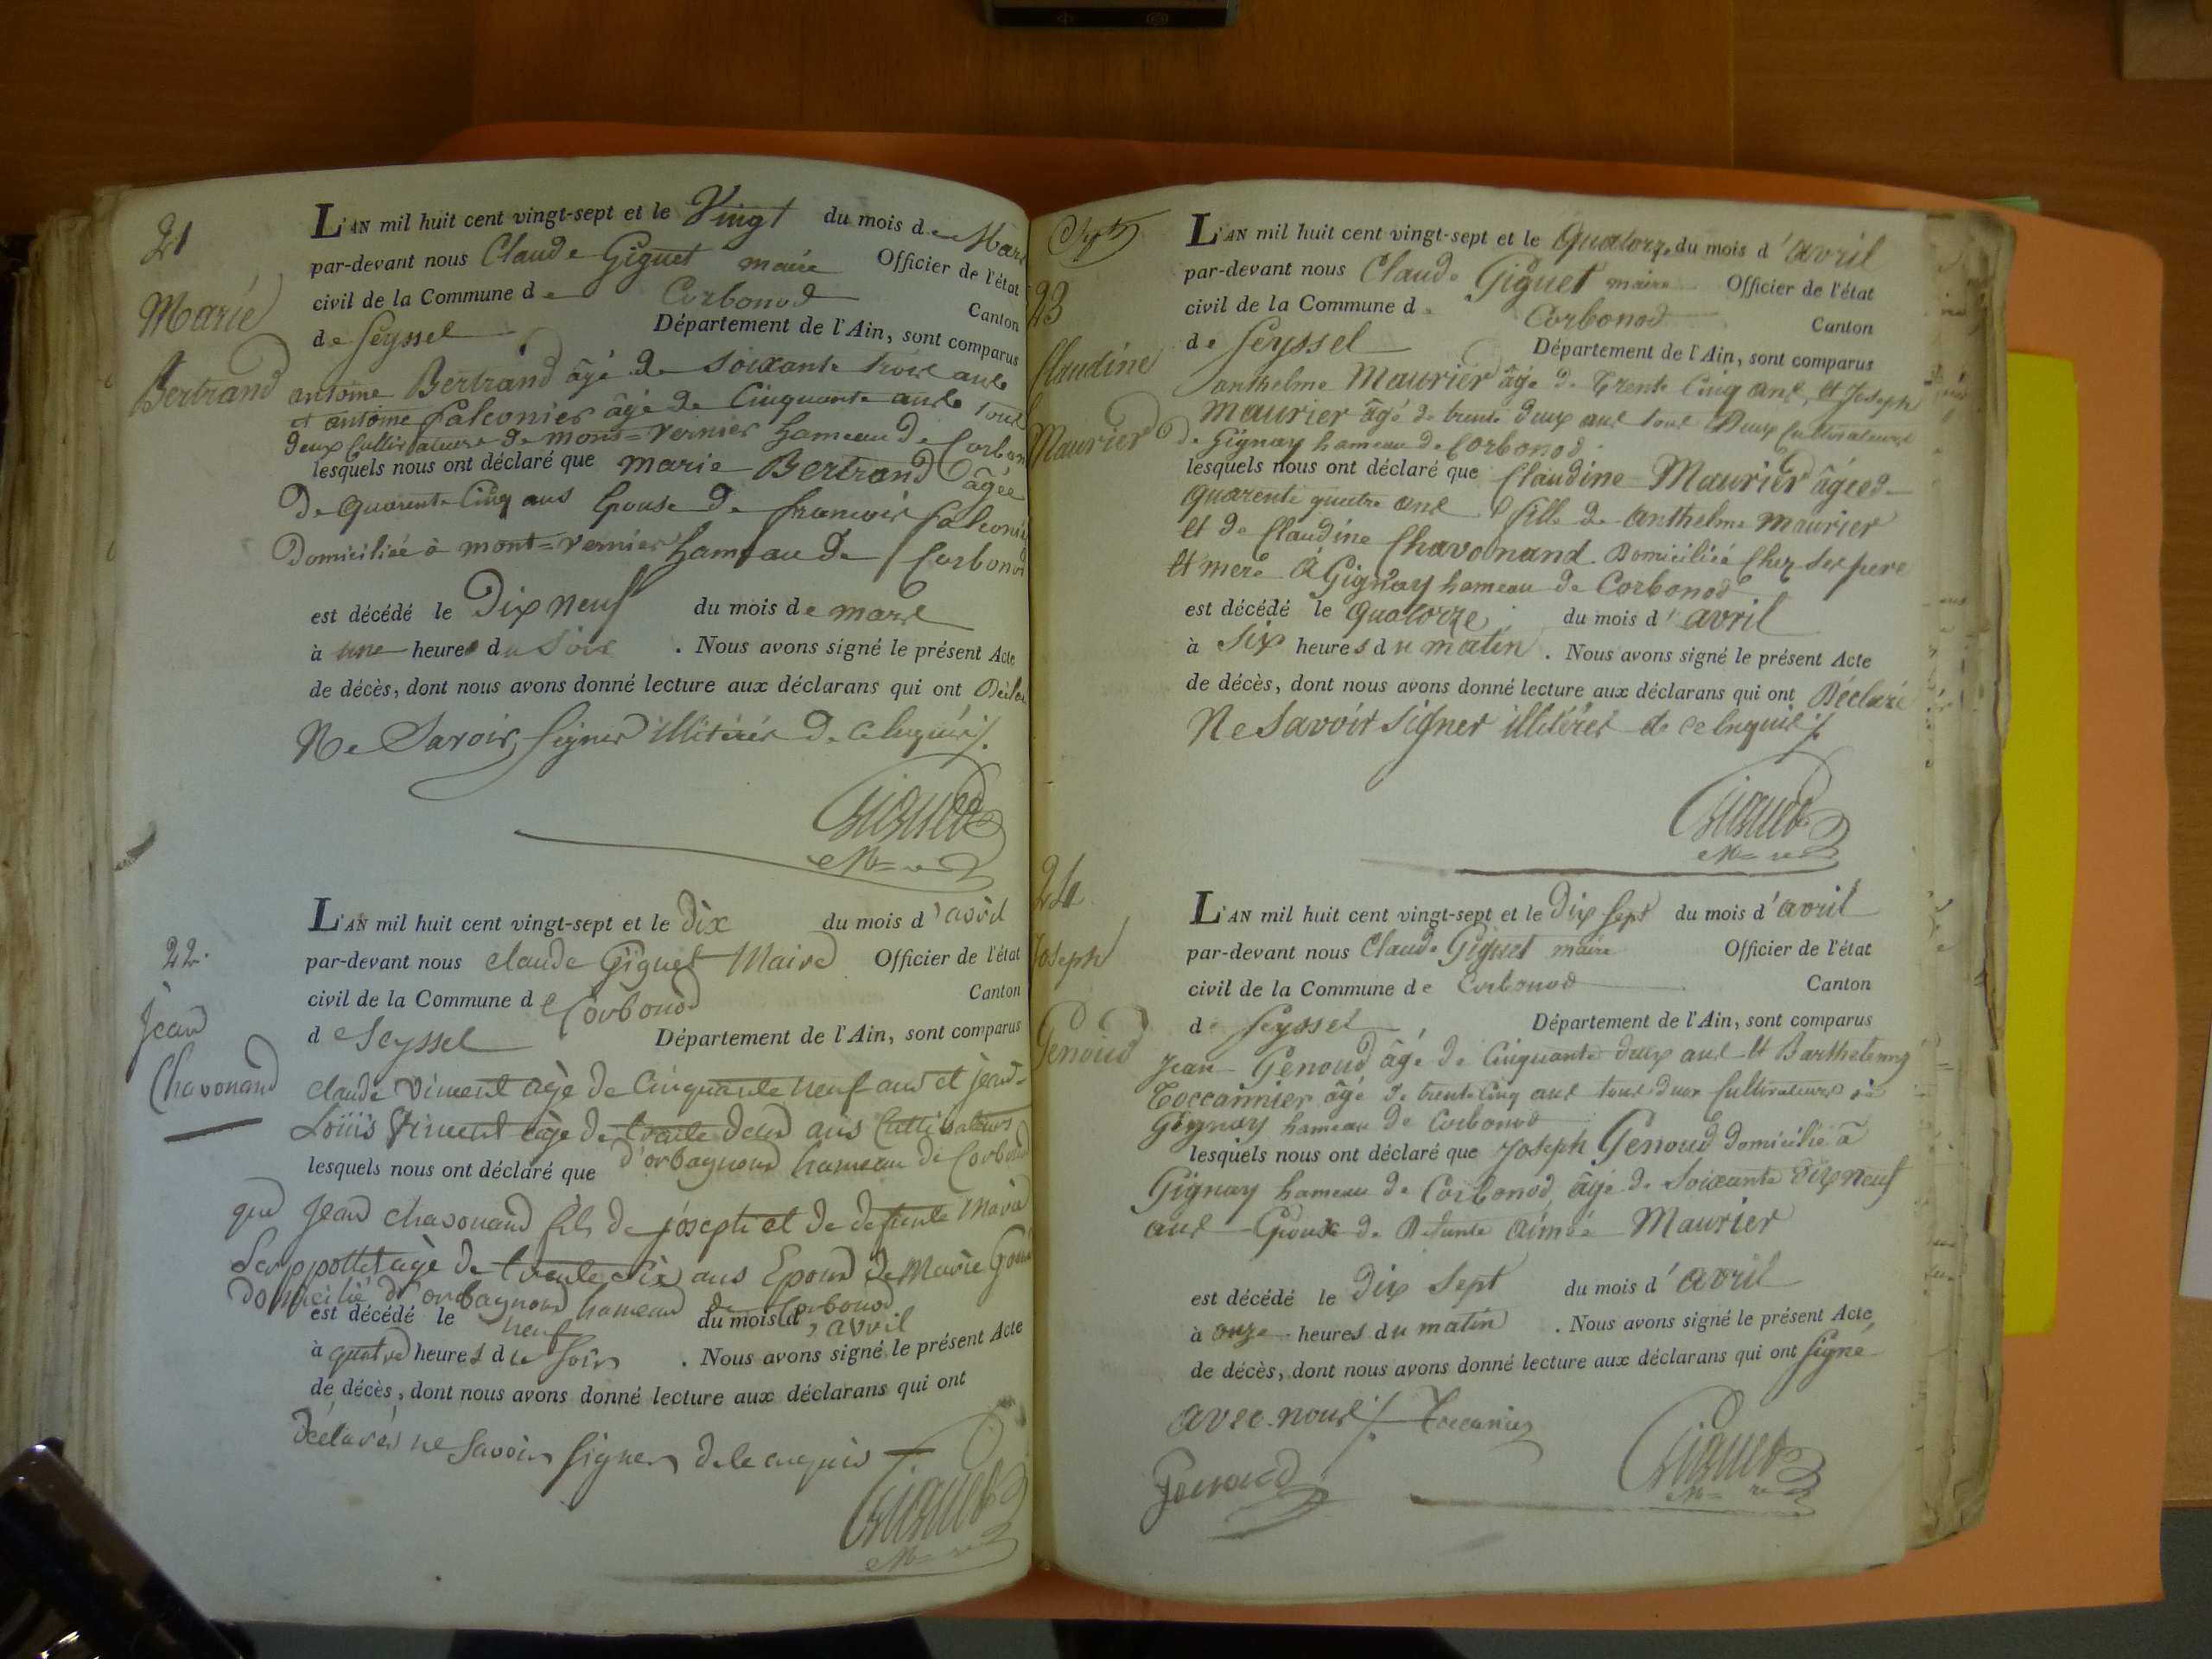 21
Marie
Bertrand
L'AN mil huit cent vingt-sept et le Vingt du mois de Mars
par-devant nous Claude Giguet maire Officier de l'état
civil de la Commune de Corbonod Canton
de Seyssel Département de l'Ain, sont comparus
antoine Bertrand âgé de soixante trois ans
et antoine falconier âgé de Cinquante ans tous
deux Cultivateurs de mont=vernier hameau de Corbon
lesquels nous ont déclaré que marie Bertrand âgée
De quarente Cinq ans Epouse de francois falconi
Domiciliée à mont=vernier hameau de Corbonod
est décédé le Dix neuf du mois de mars
à une heures du Soir . Nous avons signé le présent Acte
de décès, dont nous avons donné lecture aux déclarans qui ont Décla
Ne Savoir Signer illitérés de ce enquis /.
Giguet
M=re
22.
jean
Chavonand
L'AN mil huit cent vingt-sept et le dix du mois d'avril
par-devant nous claude Giguet Maire Officier de l'état
civil de la Commune de Corbonod Canton
de Seyssel Département de l'Ain, sont comparus
claude Vincent agé de Cinquante neuf ans et jean=
Louis Vincent agé de trente deux ans Cultivateurs
lesquels nous ont déclaré que d'orbagnoux hameau de Corbonod
que jean chavonand fils de joseph et de defunte Maria
agé de trente six ans Epoux de Marie
domicilié d'orbagnoux hameau de Corbonod
est décédé le neuf du mois d'avril
à quatre heures du soir . Nous avons signé le présent Acte
de décès, dont nous avons donné lecture aux déclarans qui ont
déclarés ne Savoir Signer de le enquis
Giguet
M=re
23
Claudine
Maurier
L'AN mil huit cent vingt-sept et le Quatorze du mois d'avril
par-devant nous Claude Giguet maire Officier de l'état
civil de la Commune de Corbonod Canton
de Seyssel Département de l'Ain, sont comparus
anthelme Maurier âgé de Trente Cinq ans, et Joseph
Maurier âgé de trente deux ans tous Deux Cultivateurs
de Gignay hameau de Corbonod
lesquels nous ont déclaré que Claudine Maurier âgée de
quarente quatre ans fille de anthelme Maurier
et de Claudine Chavonnand Domiciliée Chez ses pere
et mere à Gignay hameau de Corbonod
est décédé le quatorze du mois d'avril
à Six heures du matin . Nous avons signé le présent Acte
de décès, dont nous avons donné lecture aux déclarans qui ont Déclaré
Ne Savoir Signer illitérés de ce enquis /.
Giguet
M=re
24
Joseph
Genoud
L'AN mil huit cent vingt-sept et le Dix Sept du mois d'avril
par-devant nous Claude Giguet maire Officier de l'état
civil de la Commune de Corbonod Canton
de Seyssel Département de l'Ain, sont comparus
Jean Genoud âgé de Cinquante deux ans et Barthelemy
Toccannier âgé de trente Cinq ans tous deux Cultivateurs à
Gignay hameau de Corbonod
lesquels nous ont déclaré que Joseph Genoud domicilié à
Gignay hameau de Corbonod âgé de Soixante dix neuf
ans Epoux de Defunte aimée Maurier
est décédé le dix sept du mois d'avril
à onze heures du matin . Nous avons signé le présent Acte
de décès, dont nous avons donné lecture aux déclarans qui ont signé
avec nous /. Toccanier
Genoud
Giguet
M=re